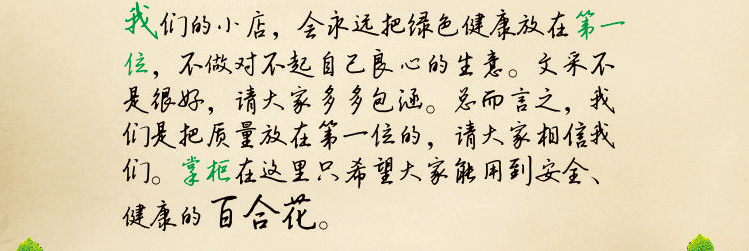 我们的小店，会永远把绿色健康放在第一
位，不做对不起自己良心的生意。文采不
是很好，请大家多多包涵。总而言之，我
们是把质量放在第一位的，请大家相信我
们。掌柜在这里只希望大家能用到安全、
健康的百合花。